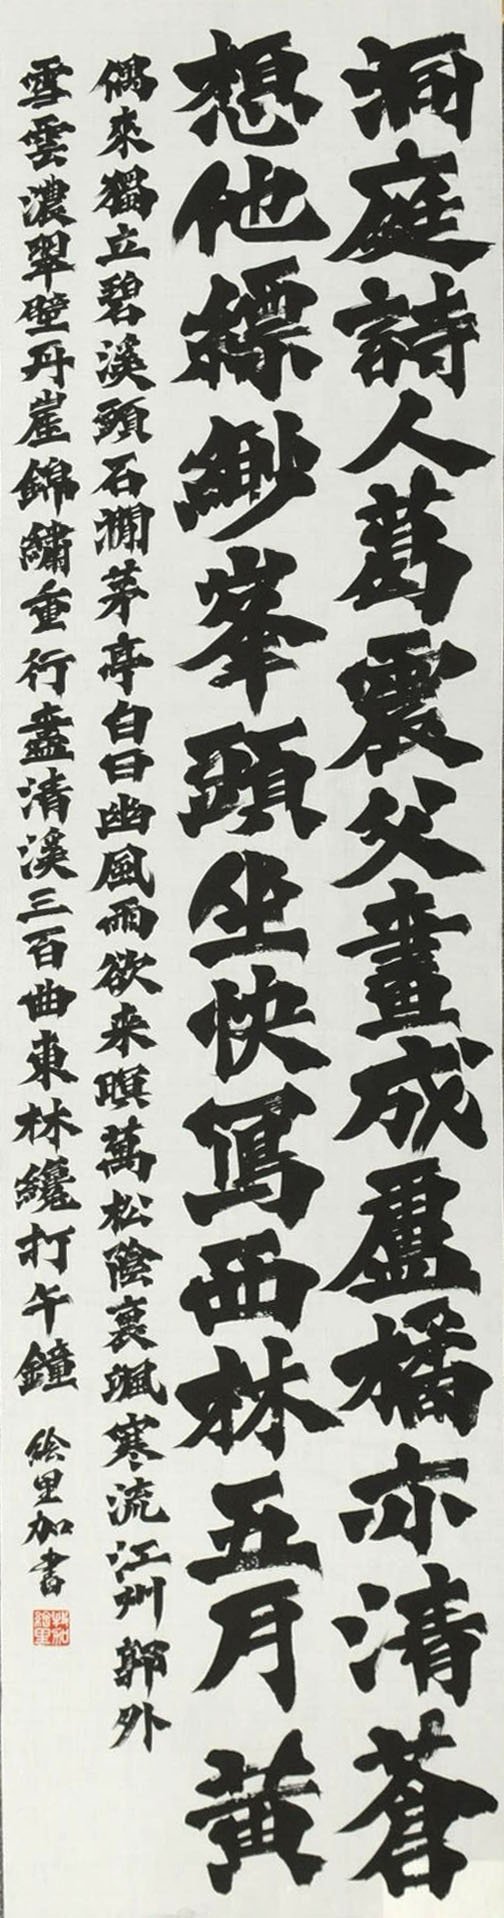 洞庭詩人葛震父畫成盧橘亦清蒼
想他縹緲峯頭坐快寫西林五月黄
偶來獨立碧溪頭石磵茅亭白日幽風雨欲来暝萬松陰裏颯寒流江州郭外
雪雲濃翠壁丹崖錦繡重行盡清溪三百曲東林纔打午鐘
絵里加書